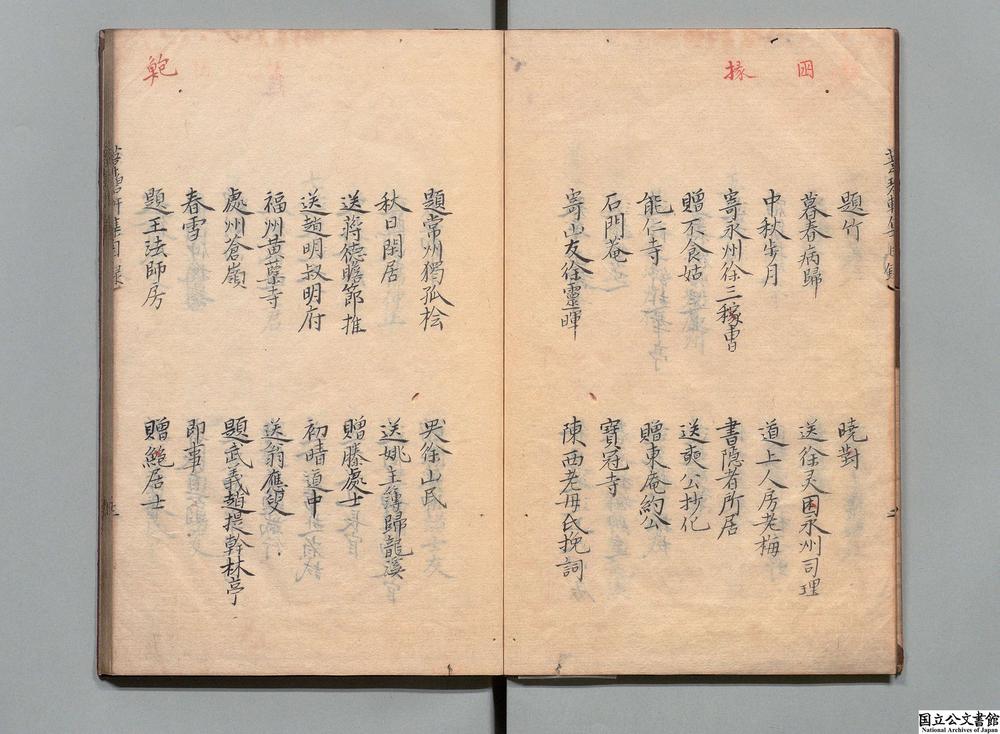 囦
掾
題竹
暁對
暮春病歸
送徐灵困永州司理
中秋步月
道上人房老梅
寄永州徐三稼曹
書隠者所居
贈不食姑
送奭公抄化
能仁寺
贈東庵約公
石門菴
寳冠寺
寄山友徐靈暉
陳西老母氏挽詞
題常州獨孤桧
哭徐山民
秋日閑居
送姚主簿歸龍溪
送蒋德瞻節推
贈滕處士
送趙明叔明府
初晴道中
福州黄蘖寺
送翁應叟
處州滄嶺
題武義趙提幹林亭
春雪
即事
題王法師房
贈鮑居士
国立公文書館
National Archives of Japan